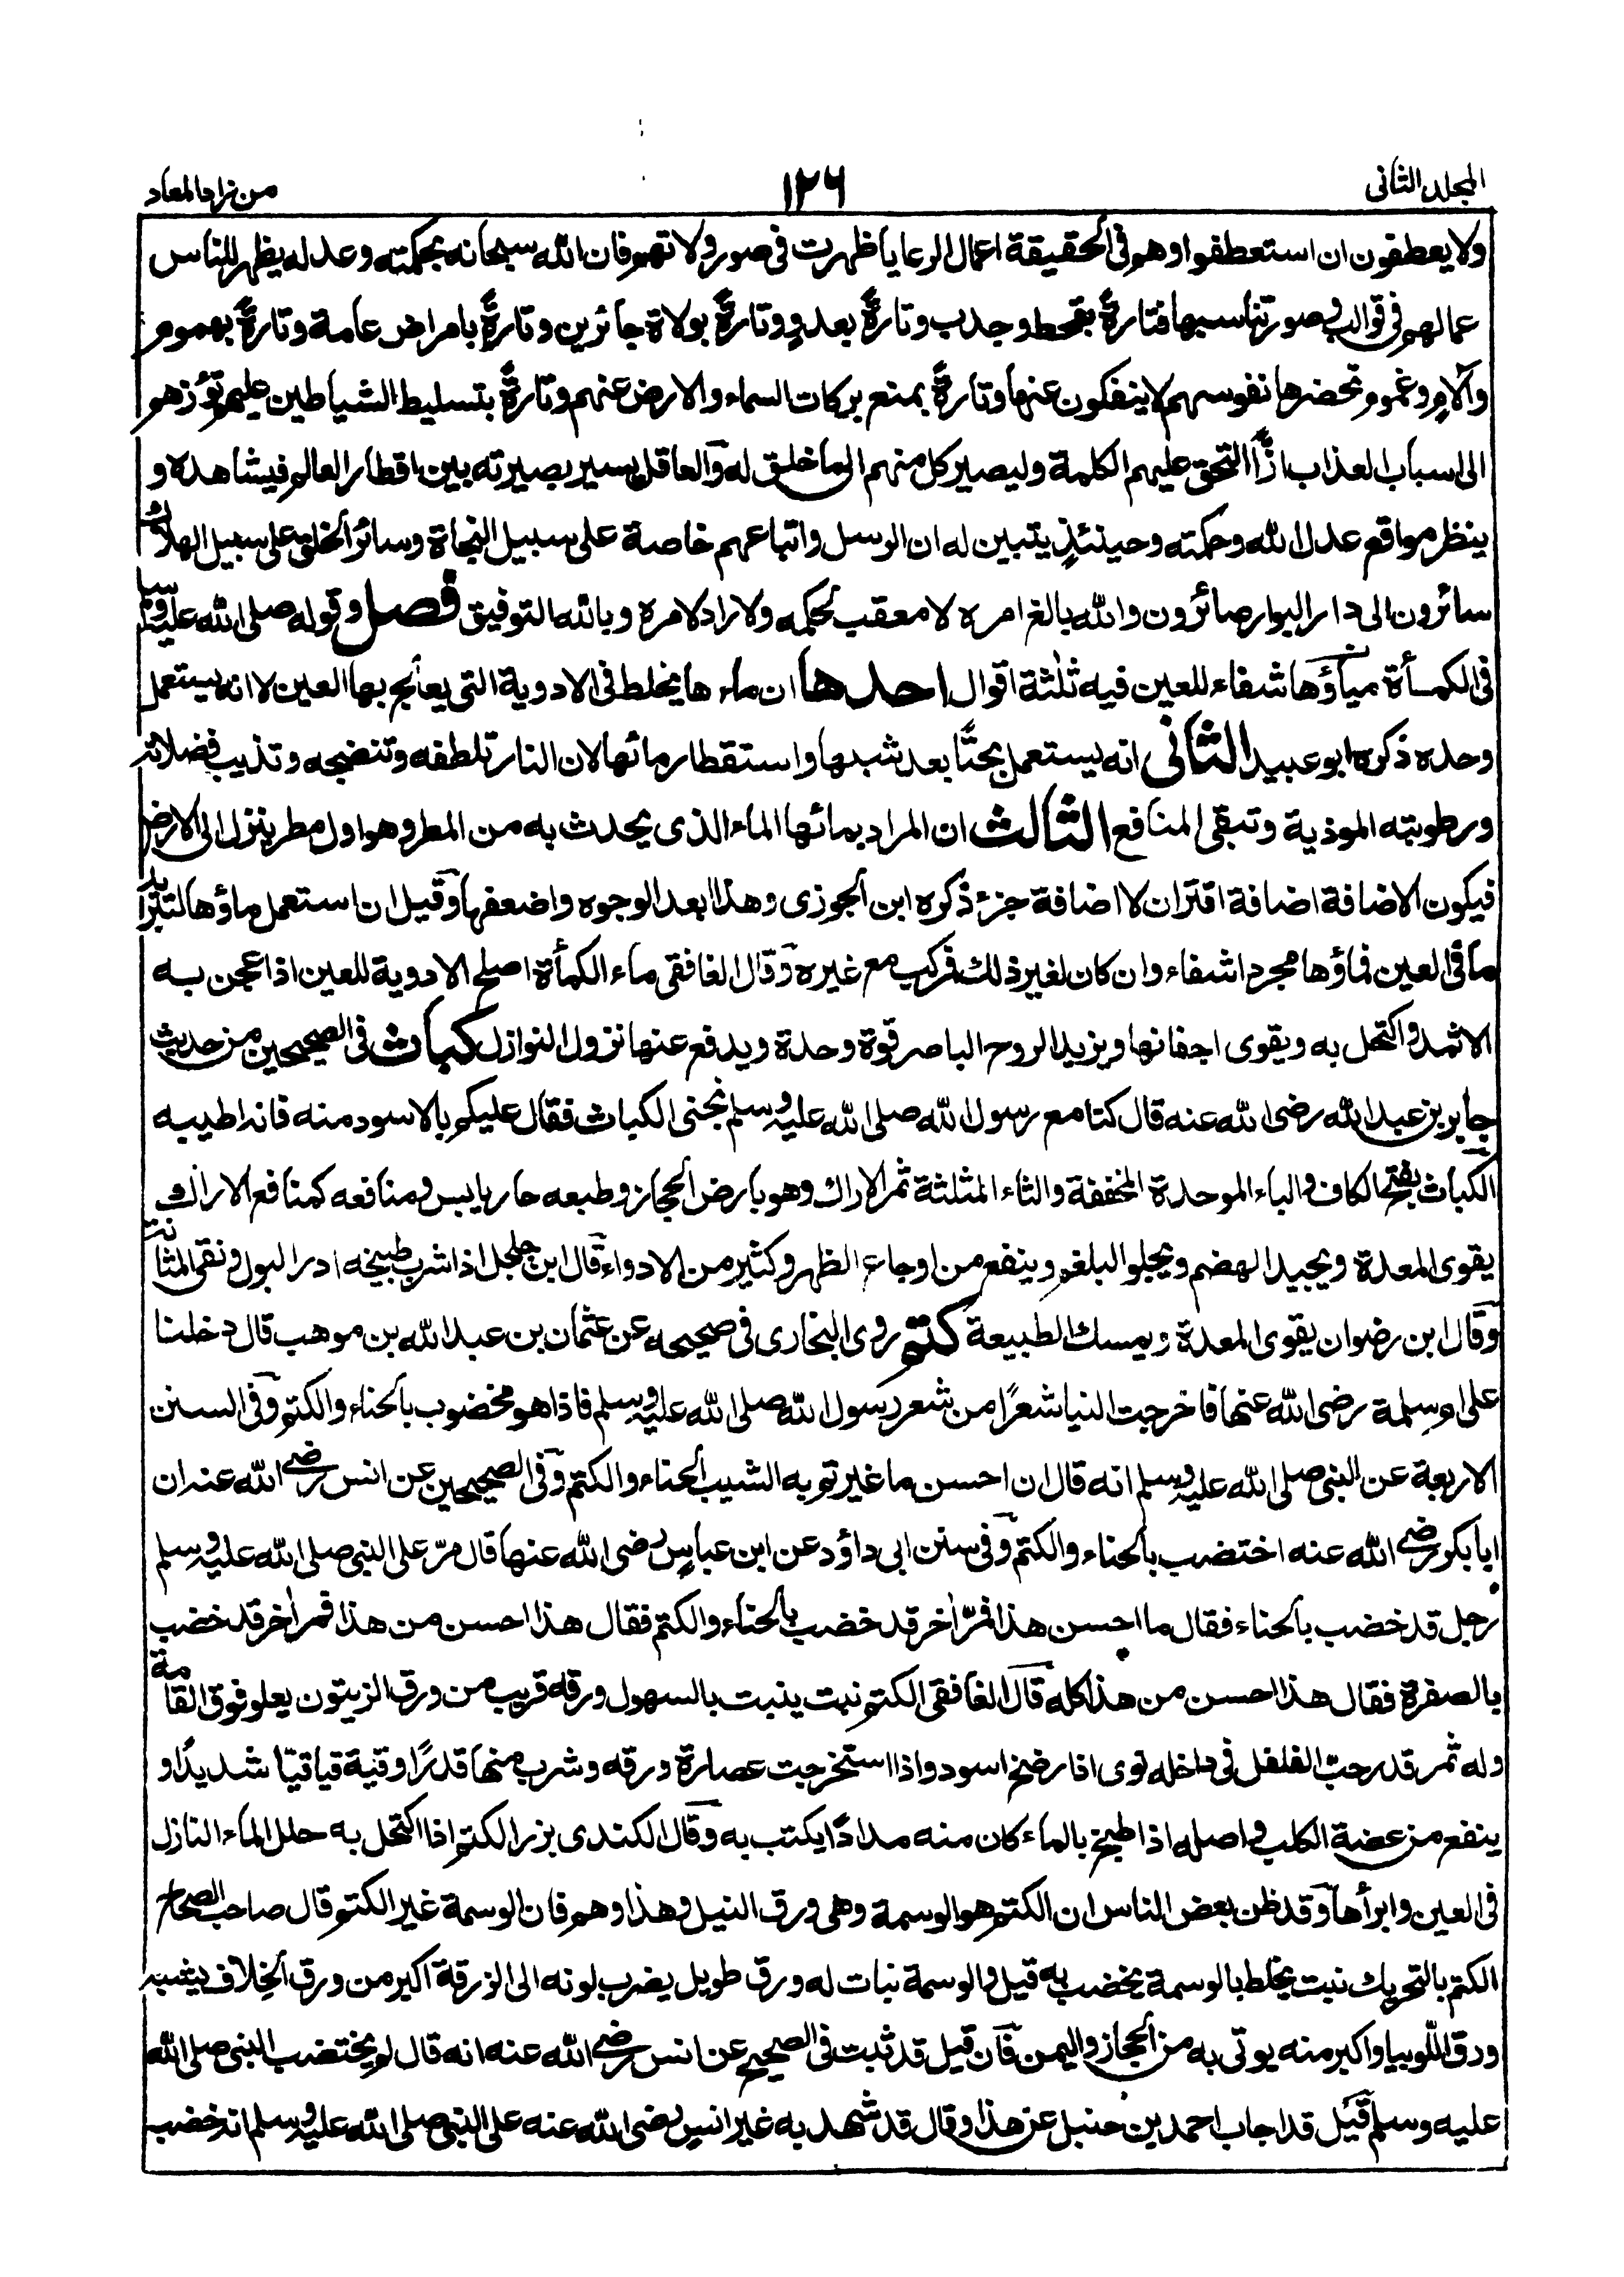 المجلد الثانى
١٢٦
من زاد المعاد
ولا يعطفون ان استعطفوا وهو فى الحقيقة اعمال الرعايا ظهرت فى صور ولاتهم فان الله سبحانه بحكمته وعدله يظهر للناس
عمالهم فى قوالب وصور تناسبها فتارةً بقحط وجدب وتارةً بعدوٍ وتارةً بولاة جائرين وتارةً بامراض عامة وتارةً بهموم
وآلام وغموم تحضرها نفوسهم لا ينفكون عنها وتارةً بمنع بركات السماء والارض عنهم وتارةً بتسليط الشياطين عليهم تؤزهم
الى اسباب العذاب ازًّا لتحق عليهم الكلمة وليصير كل منهم الى ما خلق له والعاقل يسير بصيرته بين اقطار العالم فيشاهده و
ينظر مواقع عدل الله وحكمته وحينئذٍ يتبين له ان الرسل واتباعهم خاصة على سبيل النجاة وسائر الخلق على سبيل الهلاك
سائرون الى دار البوار صائرون والله بالغ امره لا معقب لحكمه ولا راد لامره وبالله التوفيق فصل وقوله صلى الله عليه وسلم
فى الكمأة مياؤها شفاء للعين فيه ثلثة اقوال احدها ان ماءها يخلط فى الادوية التى يعالج بها العين لا انه يستعمل
وحده ذكره ابو عبيد الثانى انه يستعمل بحتًا بعد شبها واستقطار مائها لان النار تلطفه وتنضجه وتذيب فضلاته
ورطوبته الموذية وتبقى المنافع الثالث ان المراد بمائها الماء الذى يحدث به من المطر وهو اول مطر ينزل الى الارض
فيكون الاضافة اضافة اقتران لا اضافة جزء ذكره ابن الجوزى وهذا ابعد الوجوه واضعفها وقيل ان استعمل ماؤها لتبريد
ما فى العين فماؤها مجردا شفاء وان كان لغير ذلك فركب مع غيره وقال الغافقى ماء الكمأة اصلح الادوية للعين اذا عجن به
الاثمد واكتحل به ويقوى اجفانها ويزيد الروح الباصر قوة وحدة ويدفع عنها نزول النوازل كباث فى الصحيحين من حديث
جابر بن عبد الله رضى الله عنه قال كنا مع رسول الله صلى الله عليه وسلم نجنى الكباث فقال عليكم بالاسود منه فانه اطيبه
الكباث بفتح الكاف والباء الموحدة المخففة والثاء المثلثة ثمر الاراك وهو بارض الحجاز وطبعه حار يابس ومنافعه كمنافع الاراك
يقوى المعدة ويجيد الهضم ويجلو البلغم وينفع من اوجاع الظهر وكثير من الادواء قال ابن جلجل اذا شرب طبيخه ادر البول ونقى المثانة
وقال ابن رضوان يقوى المعدة ويمسك الطبيعة كتم روى البخارى فى صحيحه عن عثمان بن عبد الله بن موهب قال دخلنا
على ام سلمة رضى الله عنها فاخرجت الينا شعرًا من شعر رسول الله صلى الله عليه وسلم فاذا هو مخضوب بالحناء والكتم وفى السنن
الاربعة عن النبى صلى الله عليه وسلم انه قال ان احسن ما غيرتم به الشيب الحناء والكتم وفى الصحيحين عن انس رضى الله عنه ان
ابا بكر رضى الله عنه اختضب بالحناء والكتم وفى سنن ابى داؤد عن ابن عباس رضى الله عنها قال مرّ على النبى صلى الله عليه وسلم
رجل قد خضب بالحناء فقال ما احسن هذا فمرّ آخر قد خضب بالحناء والكتم فقال هذا احسن من هذا فمر آخر قد خضب
بالصفرة فقال هذا احسن من هذا كله قال الغافقى الكتم نبت ينبت بالسهول ورقه قريب من ورق الزيتون يعلو فوق القامة
وله ثمر قدر حبّ الفلفل فى داخله نوى اذا رضخ اسود واذا استخرجت عصارة ورقه وشرب منها قدر اوقية قيا قيّا شديدًا و
ينفع من عضة الكلب واصله اذا طبخ بالماء كان منه مدادًا يكتب به وقال الكندى بزر الكتم اذا اكتحل به حلل الماء النازل
فى العين وابرأها وقد ظن بعض الناس ان الكتم هو الوسمة وهى ورق النيل وهذا وهم فان الوسمة غير الكتم قال صاحب الصحاح
الكتم بالتحريك نبت يخلط بالوسمة يخضب به قيل والوسمة نبات له ورق طويل يضرب لونه الى الزرقة اكبر من ورق الخلاف يشبه
ورق اللوبيا واكبر منه يوتى به من الحجاز واليمن فان قيل قد ثبت فى الصحيح عن انس رضى الله عنه انه قال لم يختضب النبى صلى الله
عليه وسلم قيل قد اجاب احمد بن حنبل عن هذا وقال قد شهد به غير انس رضى الله عنه على النبى صلى الله عليه وسلم انه خضب